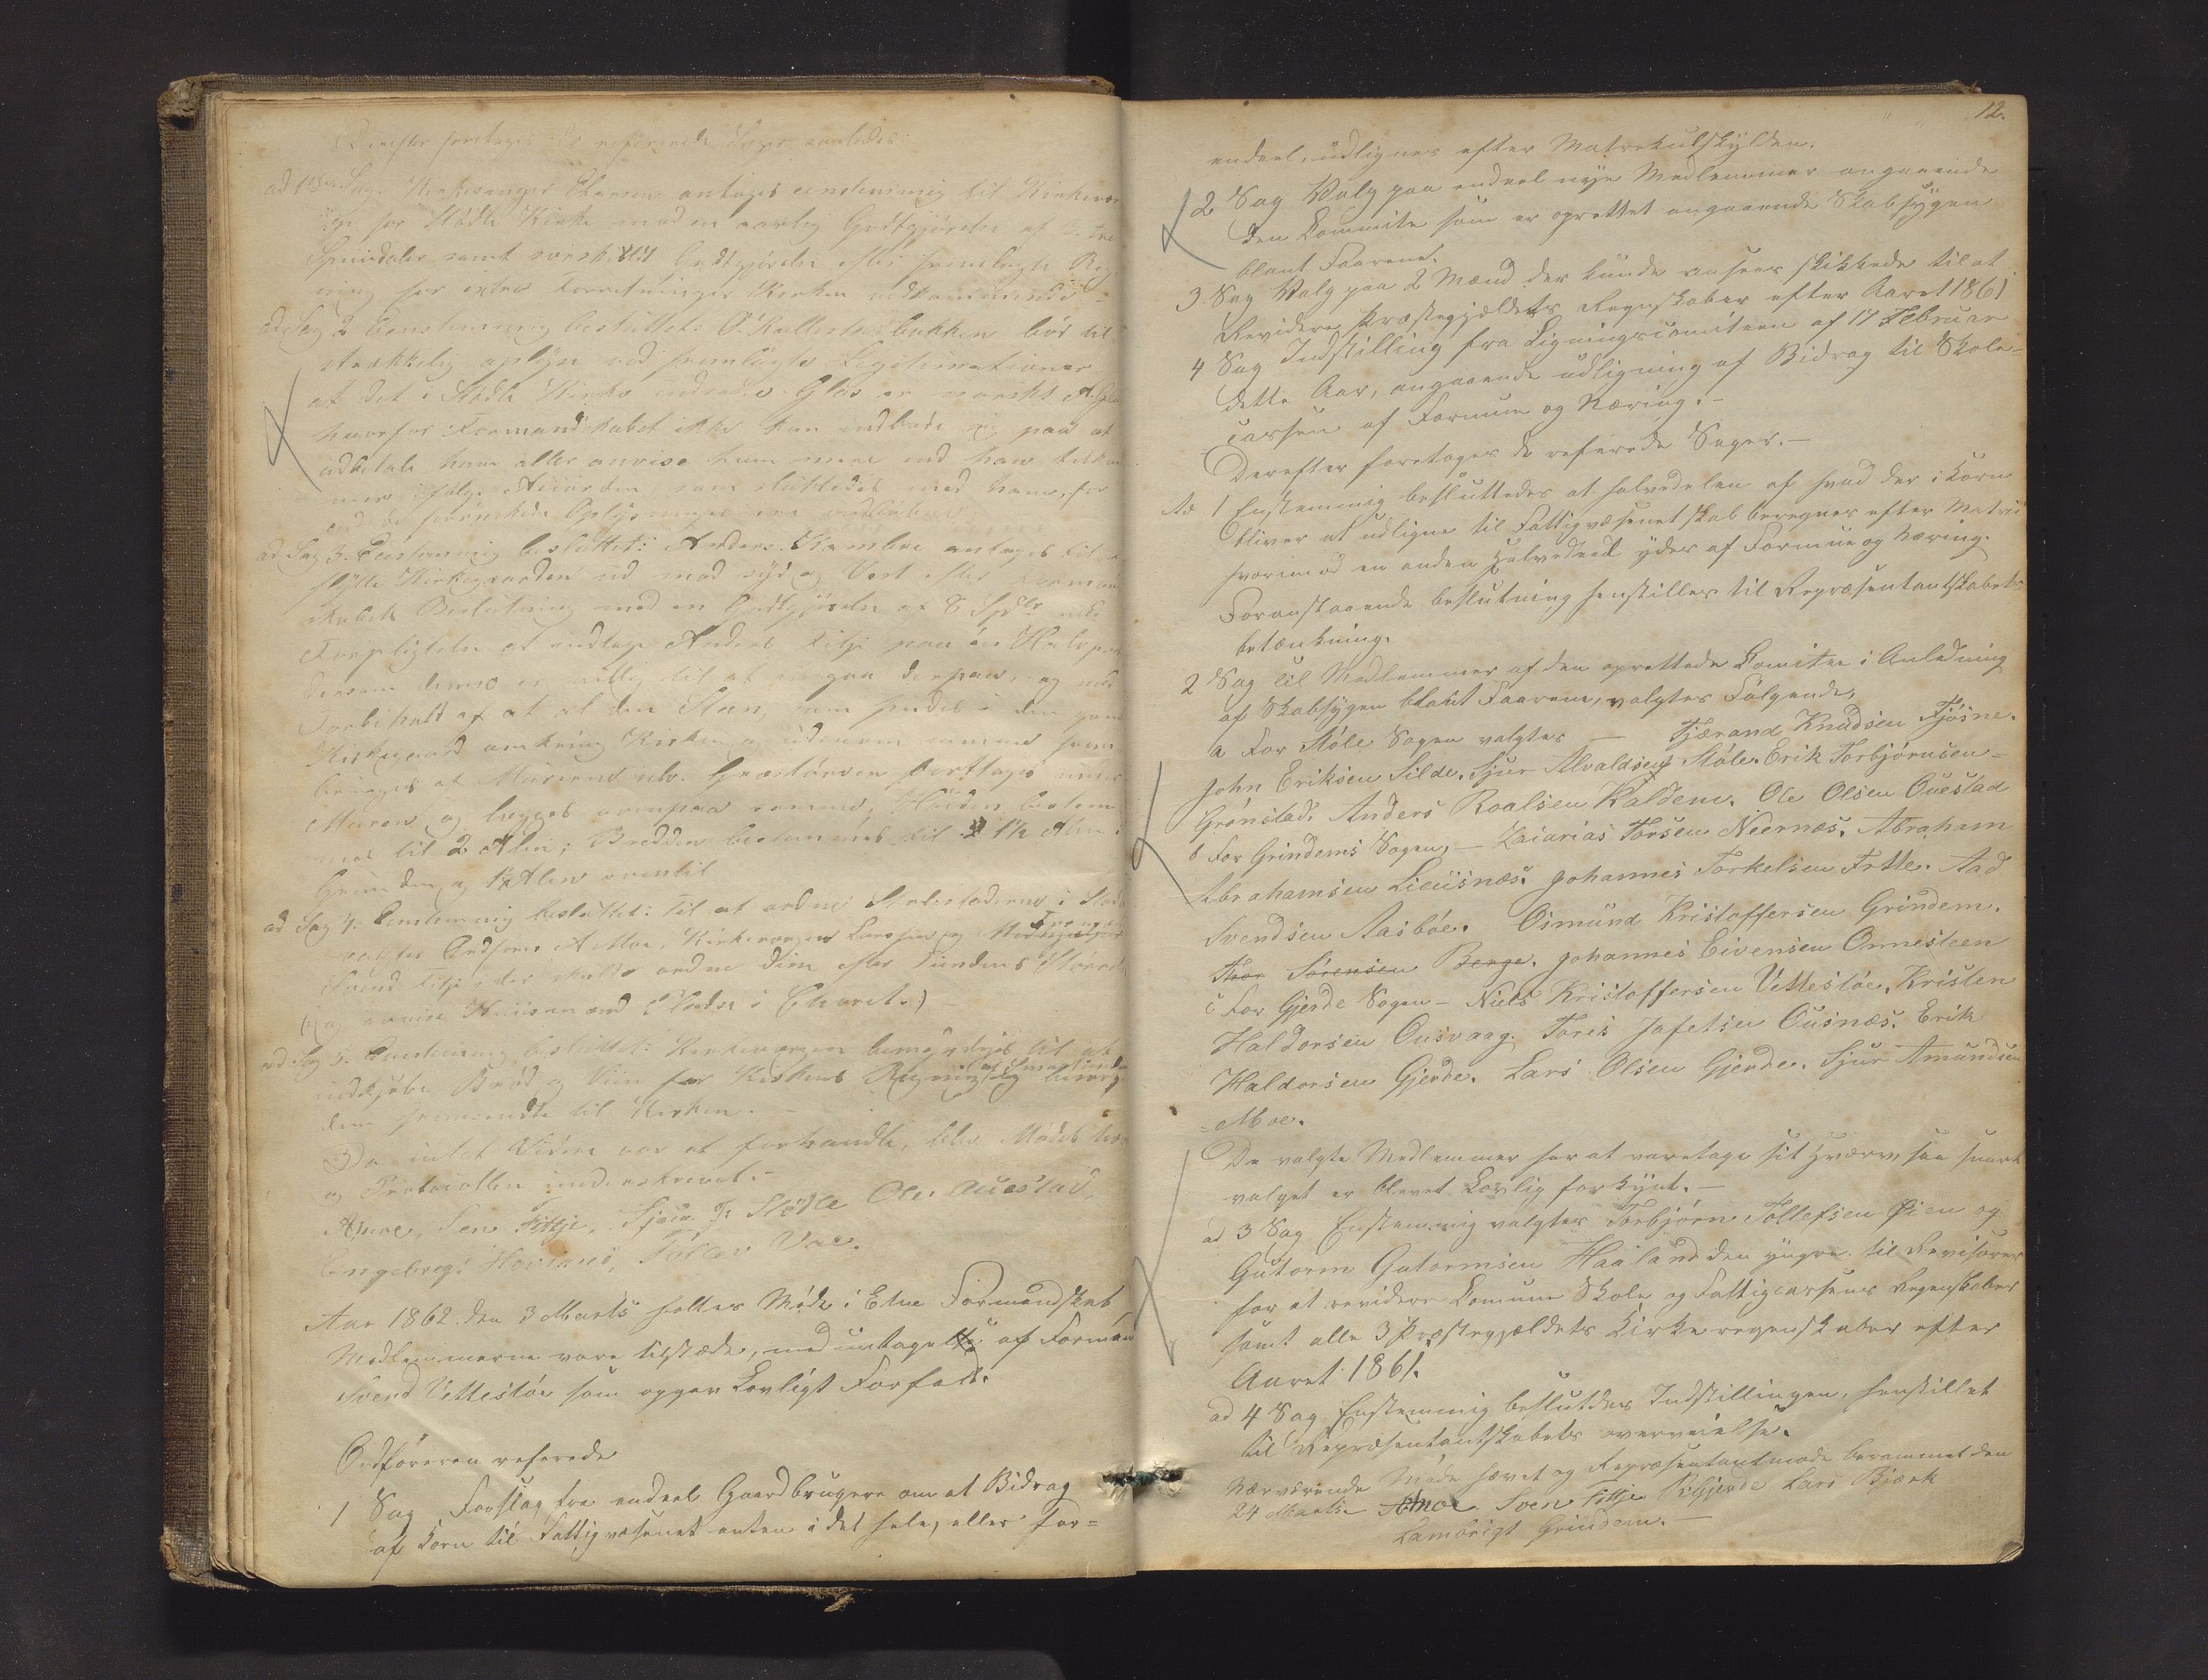 Derefter foretoges de refererede Sager saaledes:
ad 1ste Sag. Kirkesanger Larsen antoges eenstemmig til Kirkevær
ge for Stødle Kirke mod en aarlig Godtgjørelse af 3 tre
Speciedaler samt særskilt Godtgjørelse efter fremlagte Reg
ning for extra Forretninger Kirken vedkommende.
ad Sag 2. Eenstemmig besluttet: O. Rullestadbakken bør til
strækkelig oplyse ved fremlagte Legitimationer
at det i Stødle Kirke indsatte Glas er norsk
hvorfor Formandskabet ikke kan indlade sig paa at
udbetale ham eller anvise ham mere end han tilkom
mer ifølge Accorden som sluttedes med ham, før
end de forønskede Oplysninger ere indløbne.
ad Sag 3. Eenstemmig besluttet: Anders Kambe antoges til at
flytte Kirkegaarden ud mod syd og Vest efter Formand
skabets Beslutning mod en Godtgjørelse af 8 Spdlr med
Forpligtelse at indtage Anders Fitje paa en Halvpart
dersom denne er villig til at indgaa derpaa, og med
Forbehold af at al den Steen, som findes i den gamle
Kirkegaard omkring Kirken og udenom samme frem
bringes at Mureren selv. Græstørven forttages under
Muren og lægges ovenpaa samme, Høiden bestem
mes til 2 Alen; Bredden bestemmes til 1½ Alen i
Grunden og ¼ Alen oventil
ad Sag 4. Eenstemmig besluttet: Til at ordne Stolestaderne i Stødle
valgtes Ordfører A Moe, Kirkeværgen Larsen og
Svend Fitje, der skulde ordne dem efter Tiendens Størrelse
(:og anvise Huusmænd Pladse i Choret.:)
ad Sag 5. Eenstemmig besluttet: Kirkeværgen bemyndiges til at
indkjøbe Brød og Viin for Kirkens Regning og besørge
dem fremsendte til Kirken.
Da intet Videre var at forhandle, blev Mødet hævet
og Protocollen underskrevet.
AMoe, Sven Fittje, Sjur J: Stödle Ole Ouestad,
Engebregt Hovland, Tollev Vae.
Aar 1862 den 3 Marts holtes Møde i Etne Formandskab
Medlemmerne vare tilstæde, med untagelse af Forman
Svend Vettestøe som opgav Lovligt Forfald.
Ordføreren referede
1 Sag Forslag fra endeel Gaardbrugere om at Bidrag
af Korn til Fattigvæsenet enten i det hele, eller for=
12.
endeel, udlignes efter Matrekulskylden.
2 Sag Valg paa endeel nye Medlemmer angaaende
den Kommite som er oprettet angaaende Skabsygen
blant Faarene.
3 Sag Valg paa 2 Mænd der kunde ansees skikkede til at
Revidere Præstegjældets Regnskaber efter Aaret 1861
4 Sag Indstilling fra Ligningscomiteen af 17 Februar
dette Aar, angaaende udligning af Bidrag til Skole-
cassen af Formue og Næring.-
Derefter foretoges de referede Sager.-
Ad 1 Enstemmig besluttedes at halvedelen af hvad der i Korn
bliver at udligne til Fattigvæsenet skal beregnes efter Matric
hvorimod en anden Halvedeel ydes af Formue og Næring.
Foranstaaende beslutning henstilles til Repræsentantskabets
betænkning.
2 Sag til Medlemmer af den oprettede Komitee i Anledning
af Skabsygen blant Faarene, valgtes Følgende,
a For Støle Sogen valgtes — Tjærand Knudsen Fjøsne.
John Eriksen Silde. Sjur Alvaldsen Støle. Erik Torbjørnsen
Grønstad. Anders Roalsen Kaldem. Ole Olsen Ouestad
b For Grindems Sogen,- Zacarias Torsen Neernæs. Abraham
Abrahamsen Liciisnæs. Johannes Torkelsen Frtte. Aad
Svendsen Aasbøe. Osmund Kristoffersen Grindem.
Thor Sørensen Berge. Johannes Eivensen Ornesteen
c For Gjerde Sogen- Niels Kristoffersen Vettestøe. Kristen
Haldorsen Ousvaag. Tores Jafetsen Ousnæs. Erik
Haldorsen Gjerde. Lars Olsen Gjerde. Sjur Amundsen
Moe.
De valgte Medlemmer har at varetage sit Hværv, saa snart
valget er blevet Lovlig forkynt.-
ad 3 Sag Enstemmig valgtes Torbjørn Tollefsen Øien og
Gutorm Gutormsen Haaland den yngre til Revisorer
for at revidere Comune Skole og Fattigcassens Regnskaber
samt alle 3 Præstegjældets Kirkeregenskaber efter
Aaret 1861.
ad 4 Sag Enstemmig besluttes Indstillingen, henstillet
til Repræsentantskabets overveielse.
Nærværende Møde hævet og Repræsentantmøde berammet den
24 Marts AMoe. Sven Fittje Gjerde Lars Biørk
Lambrigt Grindem.-